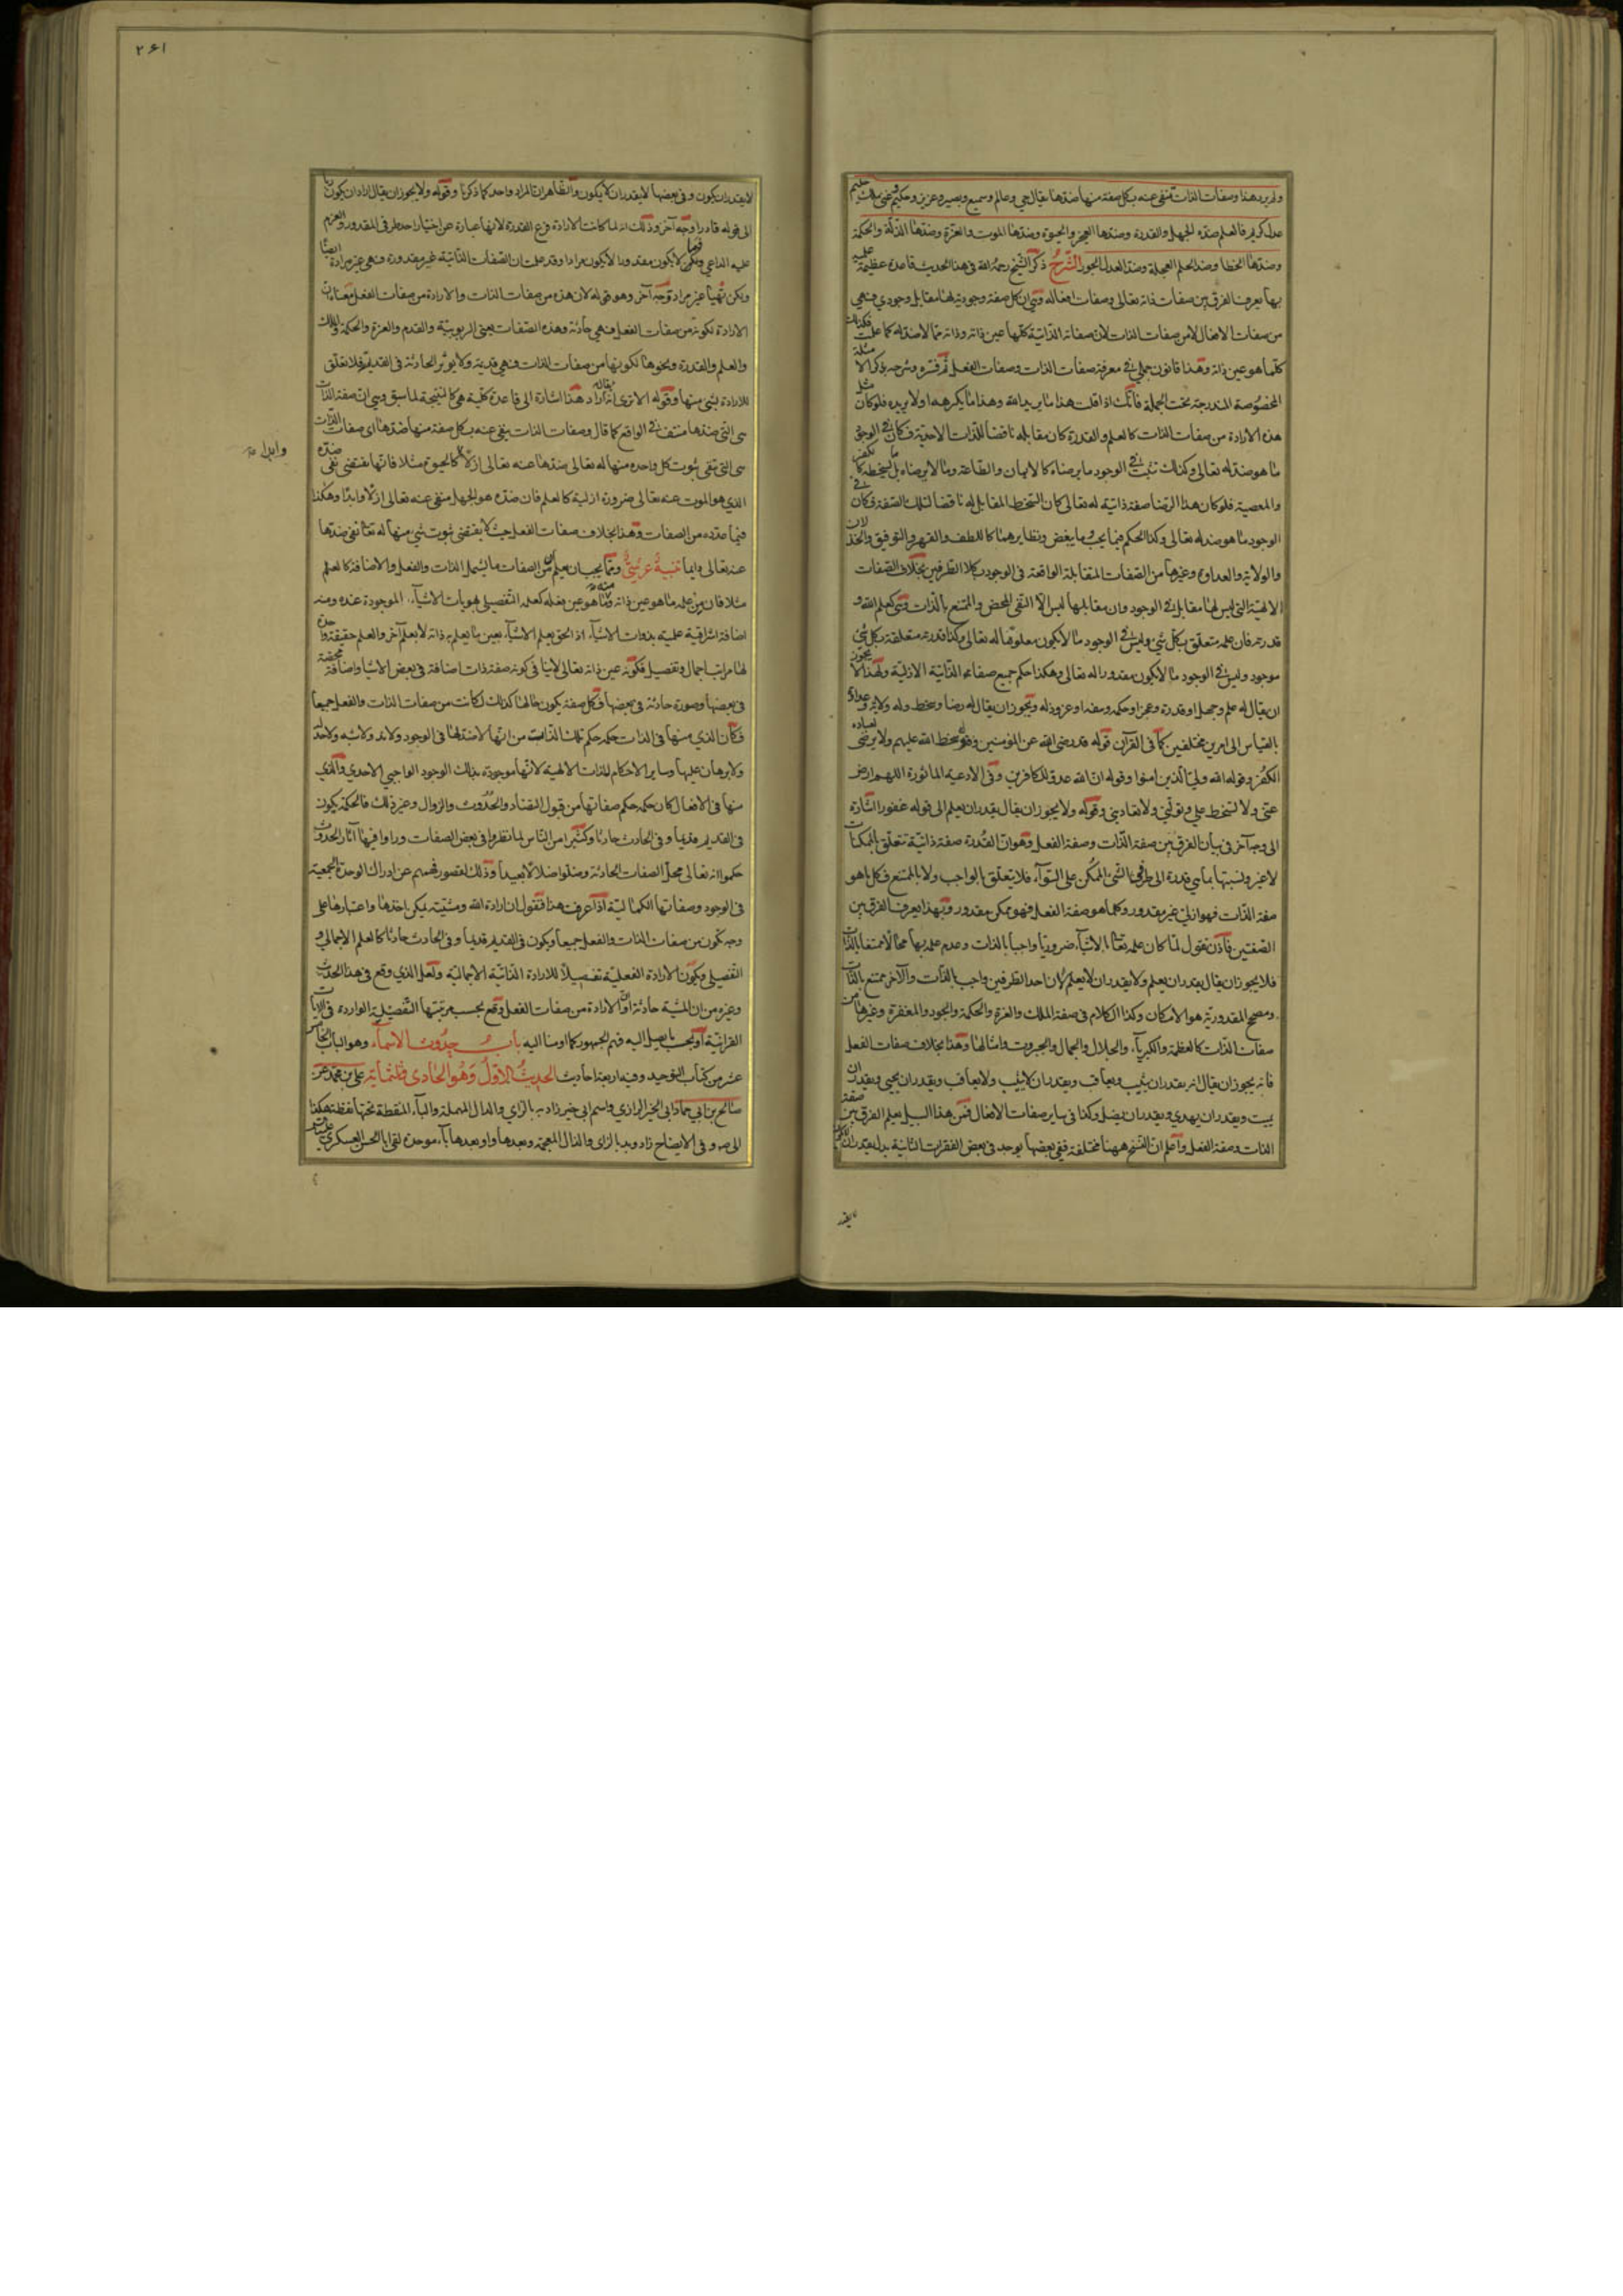 ولم يرد هذا وصفات الذات تنفى عنه بكل صفة منها ضدها يقال حي وعالم وسميع وبصير وعزيز وحكيم غنى ملك حليم
عدل كريم فالعلم ضده الجهل والقدرة وضدها العجز والحيوة وضدها الموت والعزة وضدها الذلة والحكمة
وضدها الخطا وضد الحلم العجلة وضد العدل الجور الشرح ذكر الشيخ رحمه الله فى هذا الحديث قاعدة عظيمة علمية
بها يعرف الفرق بين صفات ذاته تعالى وصفات افعاله وهي ان كل صفة وجودية لها مقابل وجودي فهي
من صفات الافعال لا من صفات الذات لان صفاته الذاتية كلها عين ذاته وذاته مما لا ضد له كما علمت فكذلك
كلما هو عين ذاته وهذا قانون جملي في معرفة صفات الذات وصفات الفعل ثم فسره وشرحه بذكر الامثلة
المخصوصة المندرجة تحت الجملة فانك اذا قلت هذا ما يريد الله وهذا ما يكرهه او لا يريده فلو كان مثل
هذه الارادة من صفات الذات كالعلم والقدرة كان مقابله ناقضا للذات الاحدية فكان في الوجود
ما هو ضد له تعالى وكذلك ثبت في الوجود ما يرضاه كالايمان والطاعة وما لا يرضاه بل يسخطه كالكفر
والمعصية فلو كان هذا الرضا صفة ذاتية له تعالى كان السخط المقابل له ناقضا لتلك الصفة فكان في
الوجود ما هو ضد له تعالى وكذا الحكم فيما يحب وما يبغض ونظايرهما كاللطف والقهر والتوفيق والخذلان
والولاية والعداوة وغيرها من الصفات المتقابلة الواقعة فى الوجود بكلا الطرفين بخلاف الصفات
الالهية التي ليس لها مقابل في الوجود وان مقابلها ليس الا النفي المحض والممتنع بالذات وهي كعلم الله و
قدرته فان علمه متعلق بكل شي وليس في الوجود ما لا يكون معلوما له تعالى وكذا قدرته متعلقة بكل شي
موجود وليس في الوجود ما لا يكون مقدورا له تعالى وهكذا حكم جميع صفاته الذاتية الازلية ولهذا لا يجوز
ان يقال له علم وجهل او قدرة وعجز او حكمة وسفه او عز وذلة ويجوز ان يقال له رضا وسخط وله ولاية وعداوة
بالقياس الى امرين مختلفين كما فى القرآن قوله قد رضى الله عن المؤمنين وقوله سخط الله عليهم ولا يرضى لعباده
الكفر وقوله الله ولي الذين امنوا وقوله ان الله عدو للكافرين وفى الادعية الماثورة اللهم ارض
عني ولا تسخط علي وتولني ولا تعاديني وقوله ولا يجوز ان يقال يقدر ان يعلم الى قوله غفورا اشارة
الى وجه آخر فى بيان الفرق بين صفة الذات وصفة الفعل وهو ان القدرة صفة ذاتية تتعلق بالممكنات
لا غير ونسبتها بما هي قدرة الى طرفي الشي الممكن على السوآء فلا يتعلق بالواجب ولا بالممتنع فكل ما هو
صفة الذات فهو ازلي غير مقدور وكلما هو صفة الفعل فهو ممكن مقدور وبهذا يعرف الفرق بين
الصفتين فاذن نقول لما كان علمه تعالى بالاشيآء ضروريا واجبا بالذات وعدم علمه بها محالا ممتنعا بالذات
فلا يجوز ان يقال يقدر ان يعلم ولا يقدر ان لا يعلم لان احد الطرفين واجب بالذات والآخر ممتنع بالذات
ومصحح المقدورية هو الامكان وكذا الكلام فى صفة الملك والعزة والحكمة والجود والمغفرة وغيرها من
صفات الذات كالعظمة والكبريآء والجلال والجمال والجبروت وامثالها وهذا بخلاف صفات الفعل
فانه يجوز ان يقال انه يقدر ان يثيب ويعاقب ويقدر ان لا يثيب ولا يعاقب ويقدر ان يحيي ويقدر ان
يميت ويقدر ان يهدي ويقدر ان يضل وكذا فى ساير صفات الافعال فمن هذا السبيل يعلم الفرق بين صفة
الذات وصفة الفعل واعلم ان النسخ ههنا مختلفة ففي بعضها يوجد فى بعض الفقرات الثانية بدل يقدر ان لا يكون
لا يقدر ان يكون وفى بعضها لا يقدر ان لا يكون والظاهر ان المراد واحد كما ذكرنا وقوله ولا يجوز ان يقال اراد ان يكون ربا
الى قوله قادرا وجه آخر وذلك انه لما كانت الارادة فرع القدرة لانها عبارة عن اختيار احد طرفى المقدور والعزم
عليه الداعي فما لا يكون مقدورا لا يكون مرادا وقد علمت ان الصفات الذاتية غير مقدورة فهى غير مرادة ايضا
ولكن ههنا غير مراد توجه آخر وهو قوله لان هذه من صفات الذات والارادة من صفات الفعل معناه ان
الارادة لكونه من صفات الفعل فهي حادثة وهذه الصفات يعني الربوبية والقدم والعزة والحكمة والملك
والعلم والقدرة ونحوها لكونها من صفات الذات فهي قديمة ولا يوثر الحادثة فى القديم فلا تعلق
للارادة بشى منها وقوله الا ترى انه يقال اراد هذا اشارة الى قاعدة كلية هي كالنتيجة لما سبق وهي ان صفة الذات
هى التي ضدها منتف في الواقع كما قال وصفات الذات ينفى عنه بكل صفة منها ضدها اى صفات الذات
هى التى تنفى بثبوت كل واحدة منها له تعالى ضدها عنه تعالى ازلا كالحيوة مثلا فانها يقتضى نفى ضده
الذي هو الموت عنه تعالى ضرورة ازلية كالعلم فان ضده هو الجهل منفى عنه تعالى ازلا وابدا وهكذا
فيما عدده من الصفات وهذا بخلاف صفات الفعل حيث لا يقتضى ثبوت شي منها له تعالى نفى ضدها
عنه تعالى دايما تنبيه عرشي ومما يجب ان يعلم ان من الصفات ما يشمل الذات والفعل والاضافة كالعلم
مثلا فان من علمه ما هو عين ذاته ومنه ما هو عين فعله كعلمه التفصيلى بهويات الاشيآء الموجودة عنده ومنه
اضافة اشراقية علمية بذوات الاشيآء اذ الحق يعلم الاشيآء بعين ما يعلم به ذاته لا بعلم آخر والعلم حقيقة واحدة
لها مراتب اجمال وتفصيل فكونه عين ذاته تعالى لا ينافى كونه صفة ذات اضافة فى بعض الاشيا واضافة محضة
فى بعضها وصورة حادثة فى بعضها وكل صفة يكون حالها كذلك لكانت من صفات الذات والفعل جميعا
فكان الذي منها فى الذات حكمه حكم تلك الذات من انها لا ضد لها فى الوجود ولا ند ولا شبه ولا حد
ولا برهان عليها وساير الاحكام للذات الالهية لانها موجودة بذلك الوجود الواجبي الاحدي والذي
منها فى الافعال كان حكمه حكم صفاتها من قبول التضاد والحدوث والزوال وغير ذلك فالحكمة يكون
فى القديم قديما وفى الحادث حادثا وكثير من الناس لما نظروا فى بعض الصفات وراوا فيها آثار الحدوث
حكموا انه تعالى محل الصفات الحادثة وضلوا ضلالا بعيدا وذلك لقصور فهمهم عن ادراك الوحدة الجمعية
فى الوجود وصفاتها الكمالية اذا عرفت هذا فنقول ان ارادة الله ومشيته يمكن اخذها واعتبارها على
وجه تكون من صفات الذات والفعل جميعا ويكون فى القديم قديما وفى الحادث حادثا كالعلم الاجمالي و
التفصيلى ويكون الارادة الفعلية تفصيلا للارادة الذاتية الاجمالية ولعل الذي وقع فى هذا الحديث
وغيره من ان المشية حادثة او ان الارادة من صفات الفعل وقع بحسب مرتبتها التفصيلية الواردة فى الايات
القرانية او بحسب ما يصل اليه فهم الجمهور كما اومنا اليه باب حدوث الاسمآء وهو الباب الخامس
عشر من كتاب التوحيد وفيه اربعة احاديث الحديث الاول وهو الحادى وثلثمأية على بن محمد عن
صالح بن ابي حماد ابى الخير الرازي واسم ابى خير زاديه بالزاي والدال المهملة والبآء المنقطة تحتها نقطة هكذا
فى صه وفى الايضاح زادويه بالزاى والذال المعجمة وبعدها واو بعدها بآء موحدة لقى ابا الحسن العسكري
٢٦١